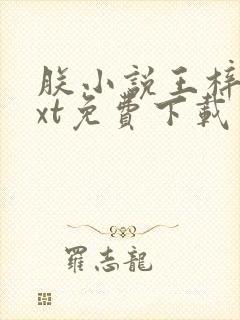 朕小說王梓
xt免費下載
羅志龍